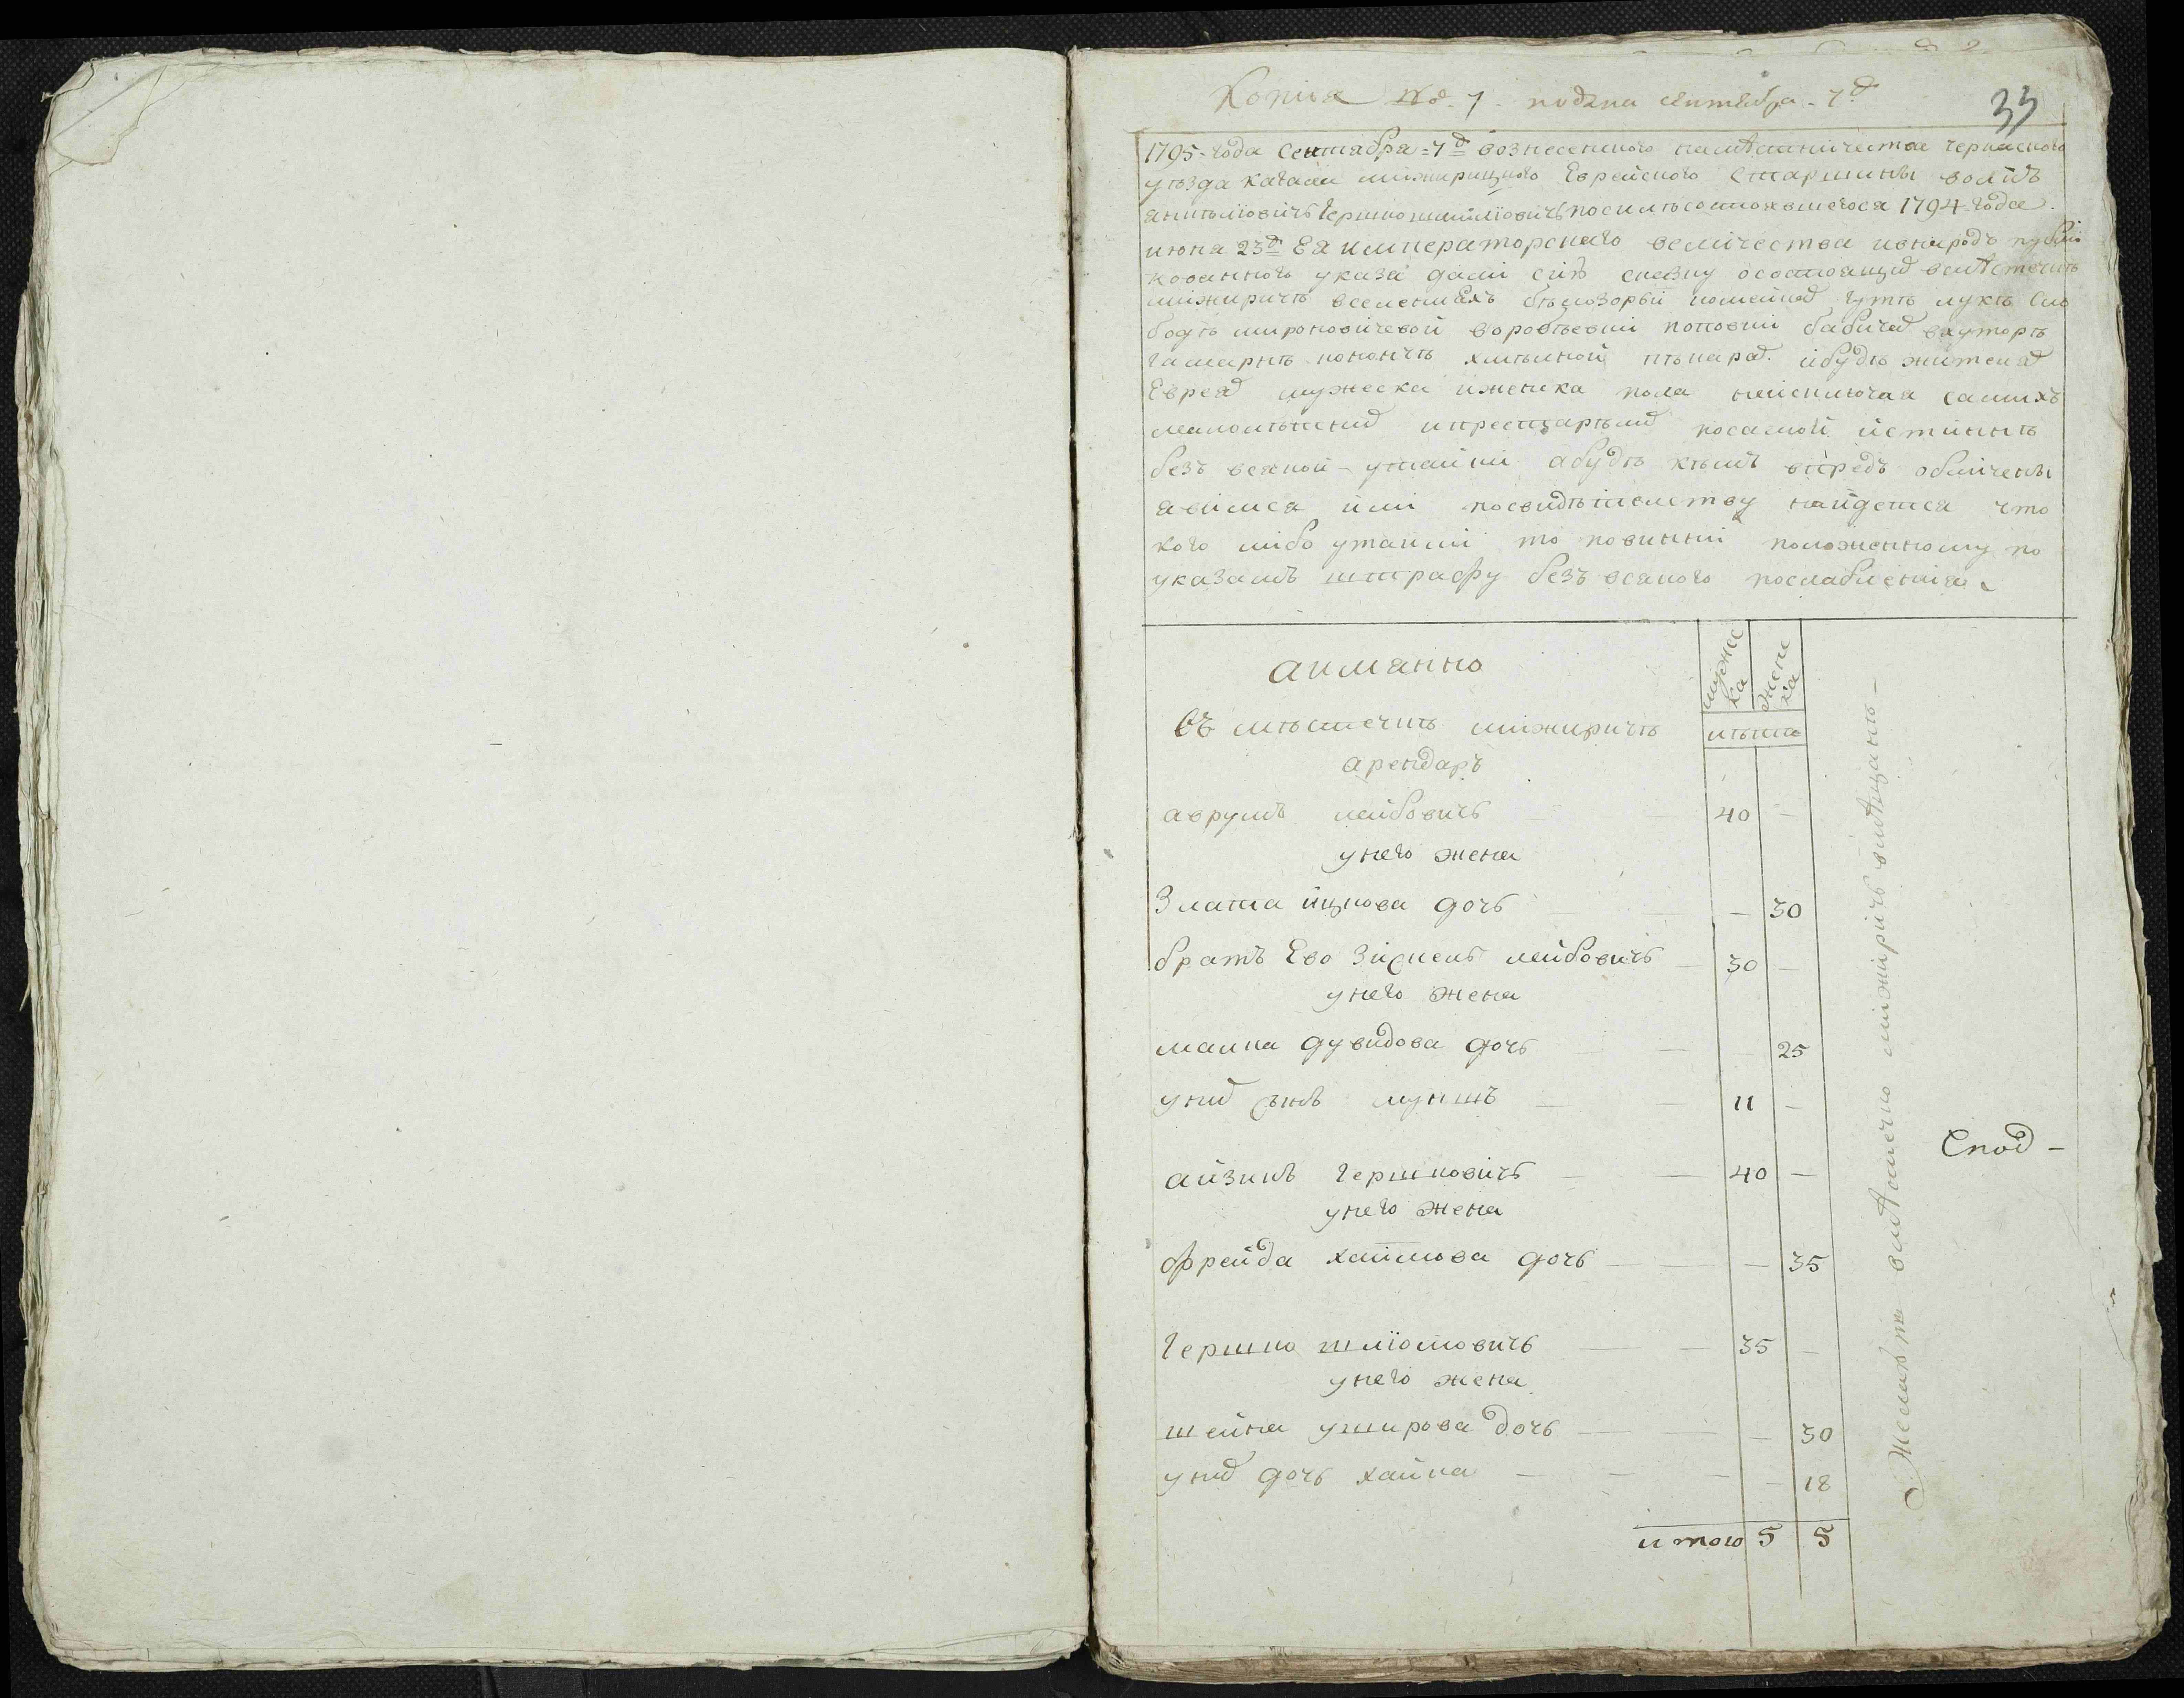 Копиѧ №. 7. подана сентября. 7д
33
1795. года сентября = 7д вознесенского наместничества черкаского
уѣзда кагала межирицкого Еврейского старшины
Гершко по силѣ состоявшегося 1794. года
июня 23д Ея императорскаго величества и в народъ публи
кованного указа дали сию скаску о состоящих в местечкѣ
межиричѣ в селенияхъ
бодѣ мироновичевой попов­ки бабичах в хуторѣ
жителях
Евреях мужеска и женска пола не исключая самихъ
малолетних и престарелых по самой истиннѣ
безъ всякой утайки а будѣ кѣмъ впредь обличены
явимся или по свидѣтелству найдется что
кого либо утаили то повинни положенному по
указамъ штрафу безъ всякого послабления
а имянно
мужес
ка
женс
ка
Въ мѣстечкѣ межиричѣ
лѣта
арендаръ
аврумъ лейбовичь 40 –
у него жена
Злата ицкова дочь – 30
братъ Ево Зискель лейбовичь 30 –
у него жена
малка дувидова дочь 25
у них сынъ мункшъ 11 –
айзикъ гершковичь 40 –
у него жена
фрейда хаимова дочь – 35
Гершко шлиомовичь 35 –
у него жена
шейна уширова дочь – 30
у них дочь хайка – 18
итого 5 5
Желаютъ в местечко межиричь в мещанѣ –
Сход –